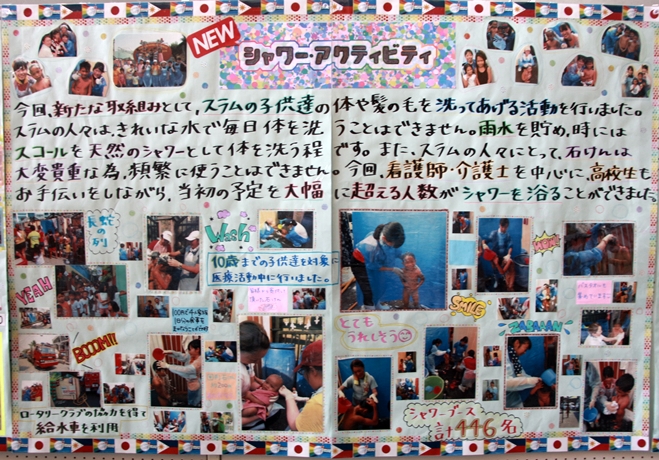 NEW
シャワー・アクティビティ
今回、新たな取組みとして、スラムの子供達の体や髪の毛を洗ってあげる活動を行いました。
スラムの人々は、きれいな水で毎日体を洗うことはできません。雨水を貯め、時には
スコールを天然のシャワーとして体を洗う程です。また、スラムの人々にとって、石けんは
大変貴重な為、頻繁に使うことはできません。今回、看護師・介護士を中心に、高校生も
お手伝いをしながら、当初の予定を大幅に超える人数がシャワーを浴ることができました。
長蛇
の列
Wash
10歳までの子供達を対象に
医療活動中に行いました。
YEAH
BOOM!!
とても
うれしそう
ZABAAAN
シャワーブース
計446名
ロータリークラブの協力を得て
給水車を利用